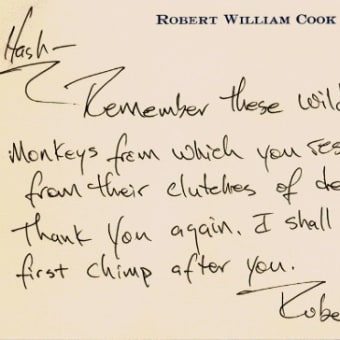 ROBERT WILLIAM COOK
Hash—
Remember these wild
Monkeys from which you res
from their clutches of de
Thank you again. I shall
first chimp after you.
Robe